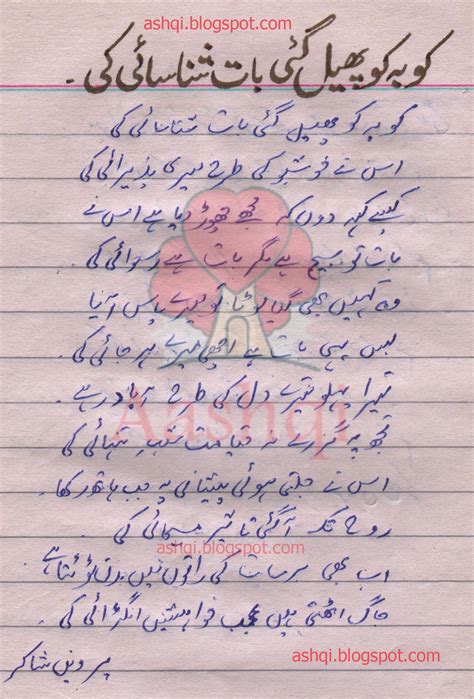 ashqi.blogspot.com
کو بہ کو پھیل گئی بات شناسائی کی۔
کو بہ کو پھیل گئی بات شناسائی کی
اس نے خوشبو کی طرح میری پذیرائی کی
کیسے کہہ دوں کہ مجھے چھوڑ دیا ہے اس نے
بات تو سچ ہے مگر بات ہے رسوائی کی۔
وہ کہیں بھی گیا لوٹا تو میرے پاس آیا
بس یہی بات ہے اچھی میرے ہرجائی کی۔
تیرا پہلو تیرے دل کی طرح آباد رہے۔
Aashqi
تجھ پہ گزرے نہ قیامت شبِ تنہائی کی
اس نے جلتی ہوئی پیشانی پہ جب ہاتھ رکھا۔
روح تک آ گئی تاثیر مسیحائی کی۔
ashqi.blogspot.com
اب بھی برسات کی راتوں میں بدن ٹوٹتا ہے۔
جاگ اٹھتی ہیں عجب خواہشیں انگڑائی کی۔
پروین شاکر
ashqi.blogspot.com